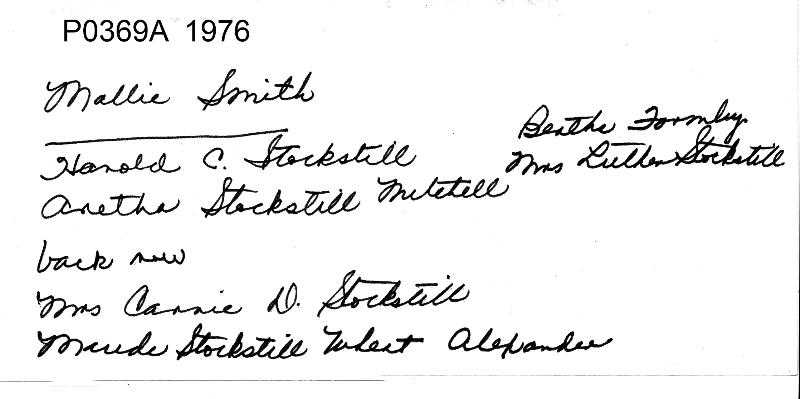 P0369A 1976
Mallie Smith
Harold C. Stockstill
Aretha Stockstill Mitchell
Bertha Formby
Mrs Luther Stockstill
back row
Mrs Cannie D. Stockstill
Maude Stockstill Wheat Alexander